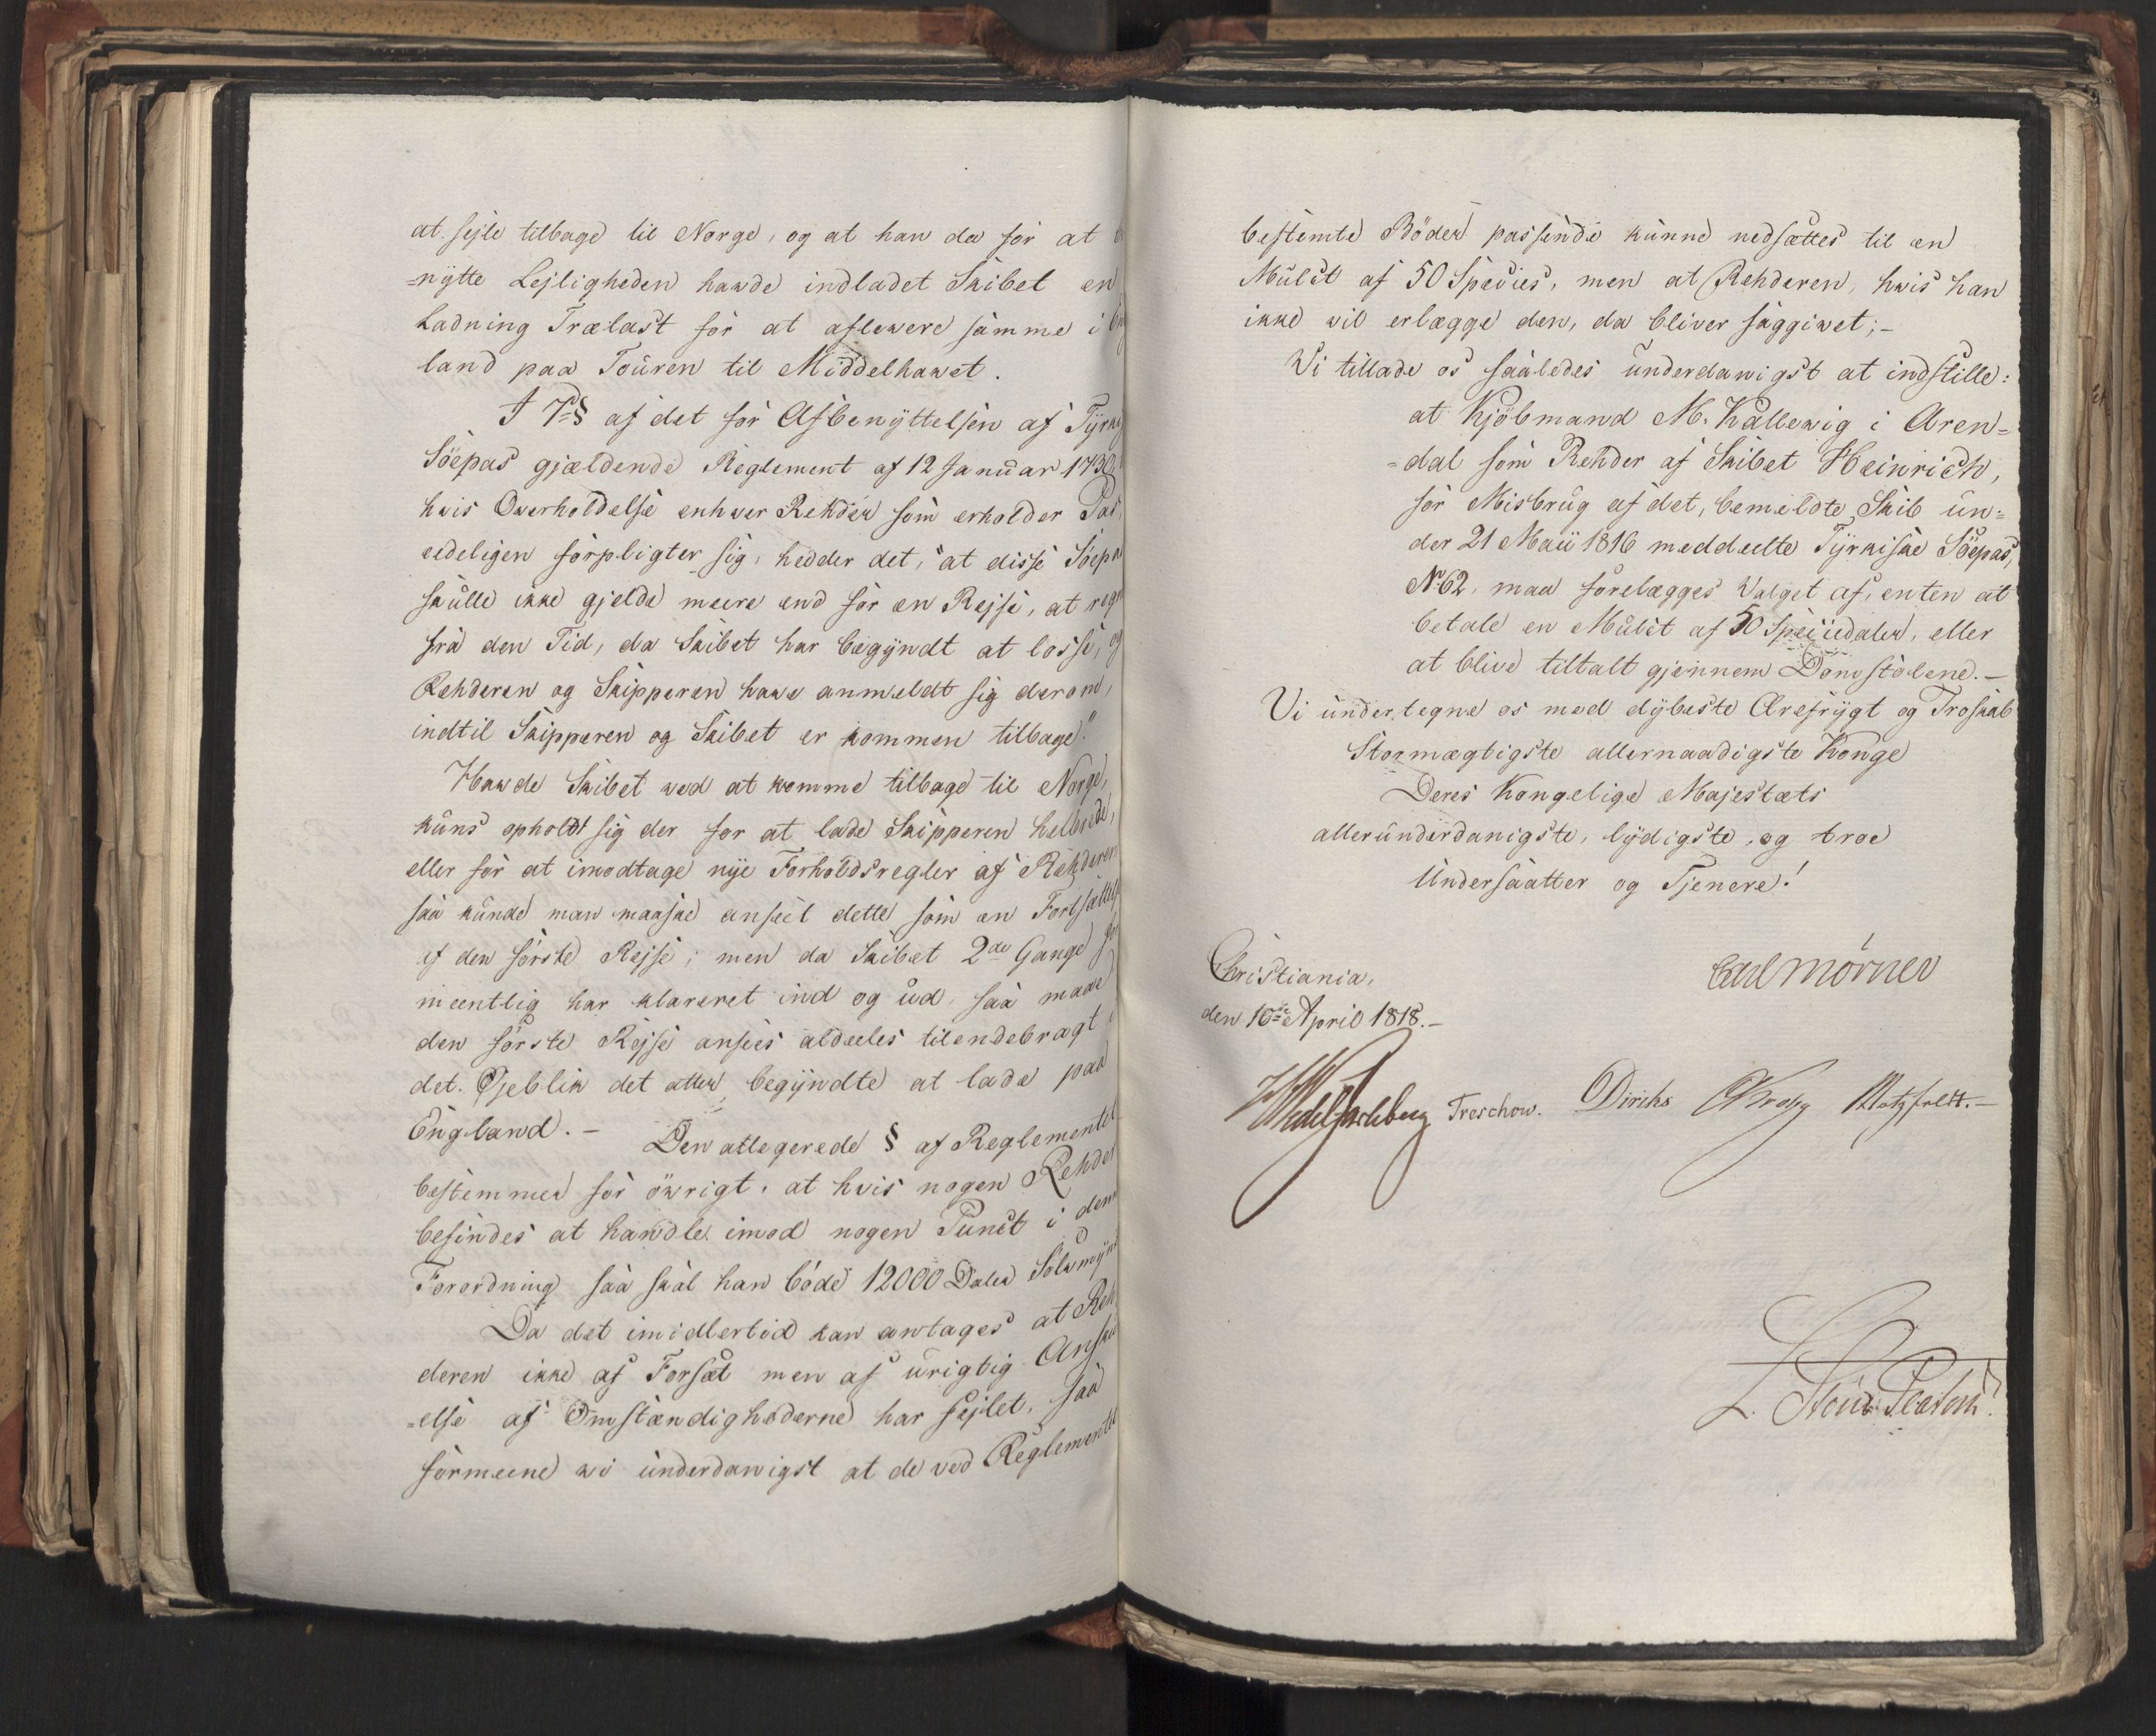 at sejle tilbage til Norge, og at han da for at
=nytte Lejligheden havde indladet Skibet en
Ladning Trælast for at aflevere samme i
land paa Touren til Middelhavet.
I 7de § af det for Afbenyttelsen af
Söepas gjældende Reglement af 12 Januar
hvis Overholdelse enhver Rehder som erholder Pas,
eedeligen forpligter sig, hedder det, "at disse
skulle ikke gjelde meere end for en Rejse, at
fra den Tid, da Skibet har begyndt at losse, og
Rehderen og Skipperen have anmeldt sig derom,
indtil Skipperen og Skibet er kommen tilbage."
Havde Skibet ved at komme tilbage til Norge,
kuns opholdt sig der for at lade Skipperen helbrede,
eller for at imodtage nye Forholdsregler af Rehderen
saa kunde man maaskee anseet dette som en
af den förste Rejse; men da Skibet 2de Gange
meentlig har klareret ind og ud, saa maae
den förste Rejse ansees aldeeles tilendebragt
det Öjeblik det atter begyndte at lade paa
England. – Den allegerede § af Reglementet
bestemmer for övrigt, at hvis nogen Rehder
befindes at handle imod nogen Punct i
Forordning saa skal han böde 12000 Daler
Da det imidlertid kan antages at Reh
deren ikke af Forsæt men af urigtig
=else af Omstændighederne har sejlet, saa
formeene vi underdanigst at de ved Reglementet
bestemte Böder passende kunne nedsættes til en
Mulct af 50 Species, men at Rehderen, hvis han
ikke vil erlægge den, da bliver saggivet; –
Vi tillade os saaledes underdanigst at indstille:
at Kjöbmand M. Kallevig i Aren=
=dal som Rehder af Skibet Heinrich,
for Misbrug af det, bemeldte Skib un=
der 21 Maii 1816 meddeelte Tyrkiske Söepas,
No 62, maa forelægges Valget af, enten at
betale en Mulct af 50 Speciedaler, eller
at blive tiltalt gjennem Domstolene. –
Vi undertegne os med dybeste Ærefrygt og Troskab
Stormægtigste allernaadigste Konge
Deres Kongelige Majestæts
allerunderdanigste, lydigste, og troe
Undersaatter og Tjenere!
Christiania,
den 16de April 1818. –
Carl Mörner
Wedel Jarlsberg Treschow. Diriks Krogh Motzfeldt. –
L. Stoud Platou